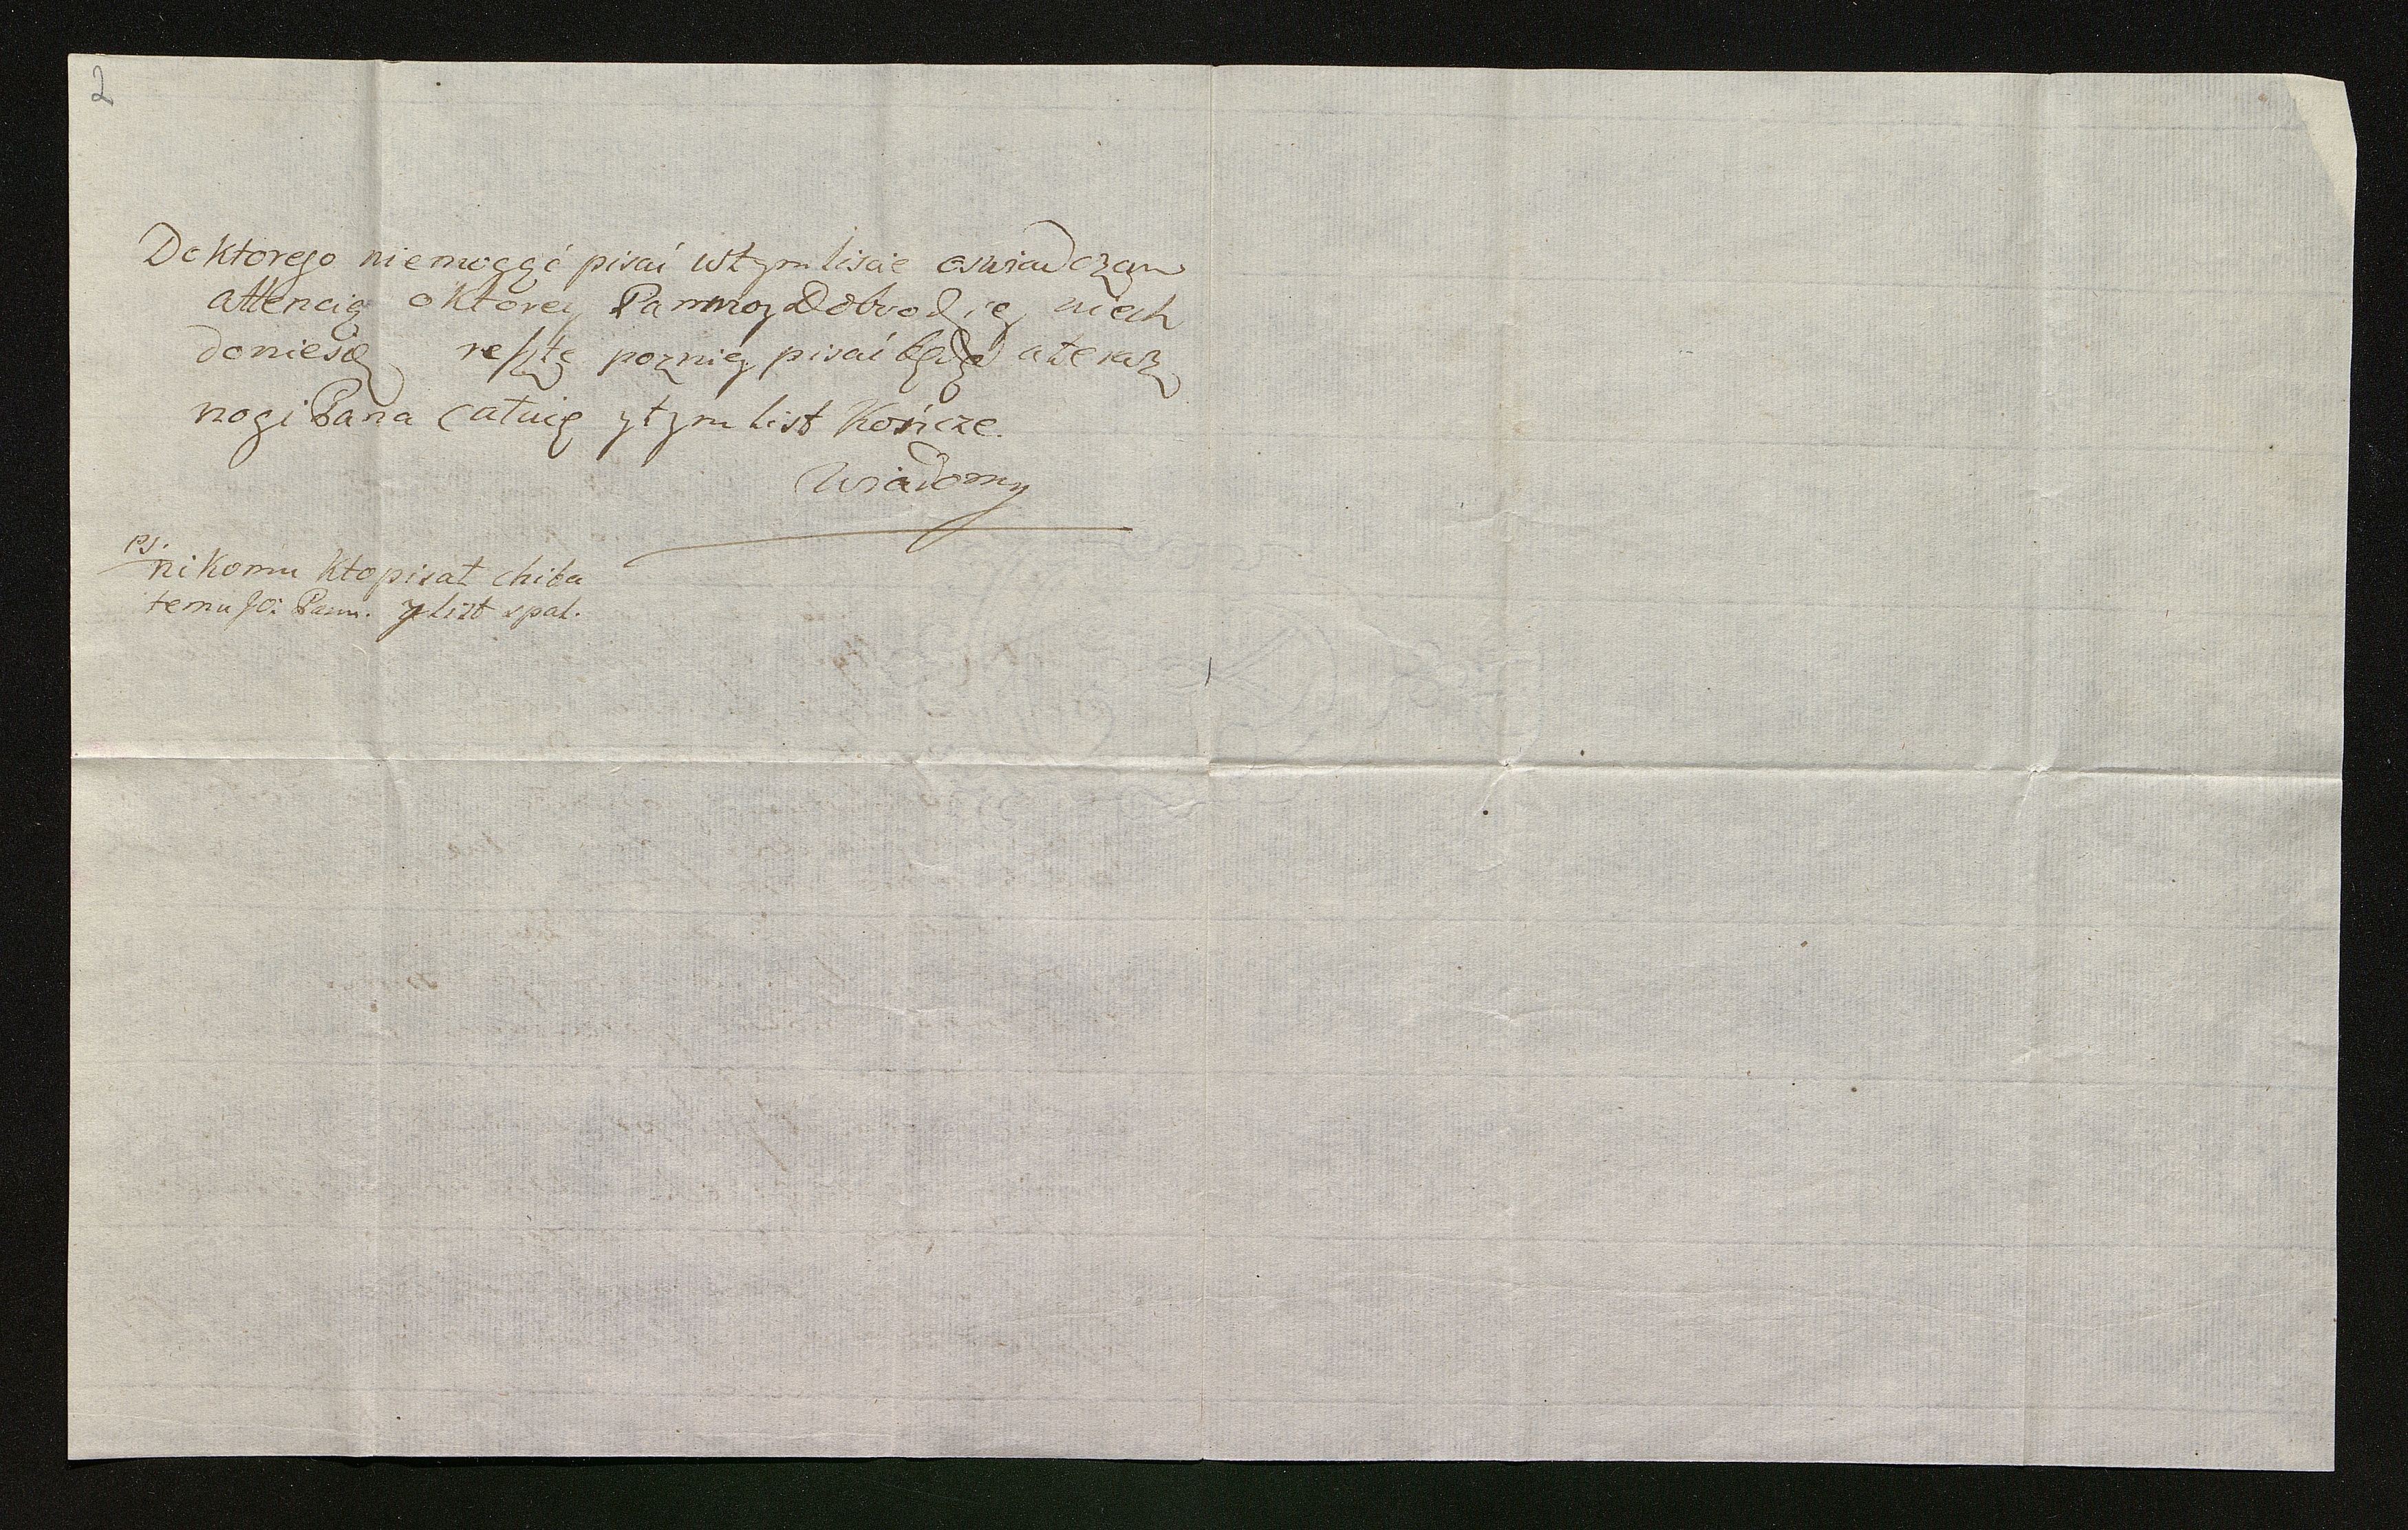 2
Do ktorego niemogąć pisać wtym liscie oswiadczam
attencią o ktorey Pan moy Dobrodziey niech
doniesie resztę pozniey pisać będę a teraz
nogi Pana całuię y tym list Kończe.
Wiadomy
PS.
nikomu kto pisał chiba
temu JO: Panu. y list spal.